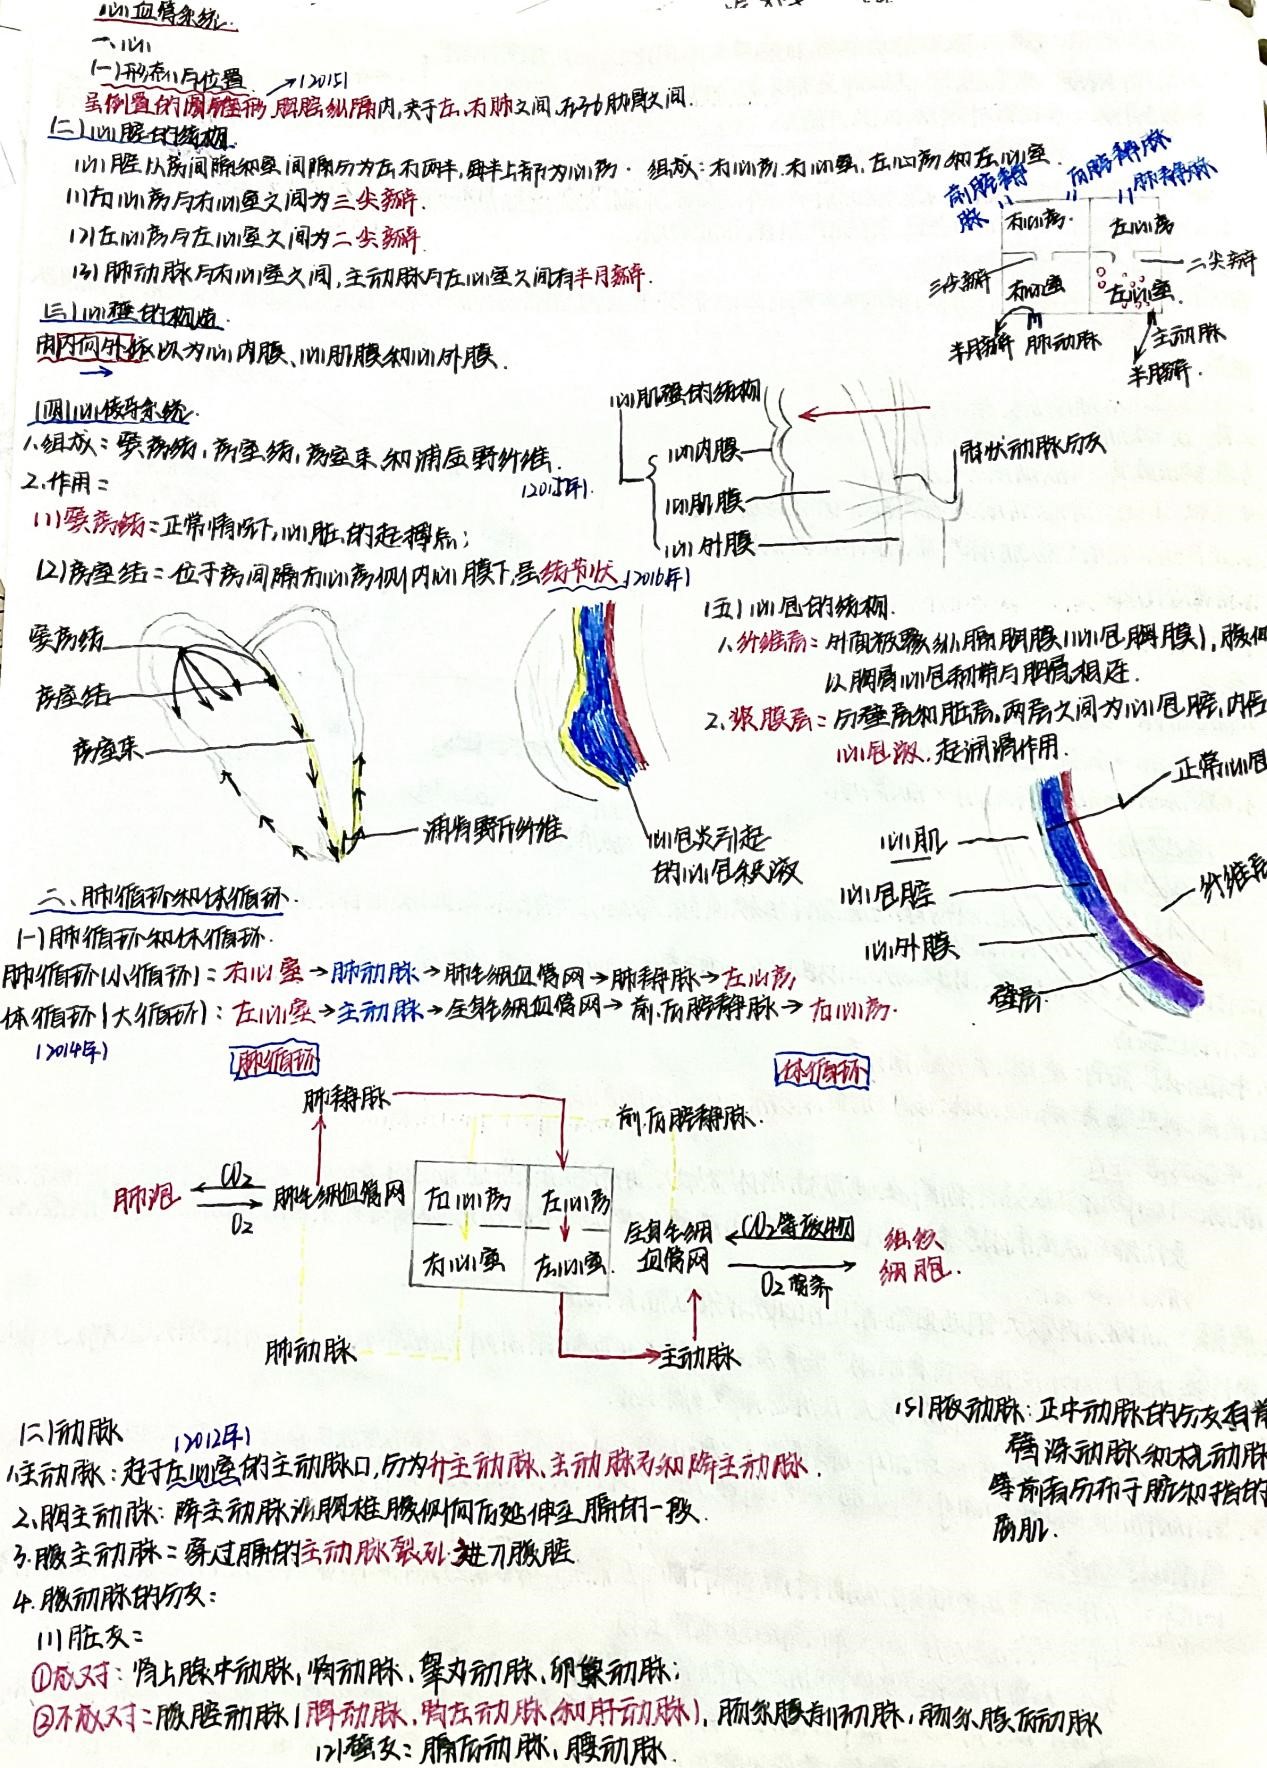 心血管系统.
一、心
(一)形态与位置
(2015)
呈倒置的圆锥形,胸腔纵隔内,夹于左、右肺之间,在3~6肋骨之间.
(二)心腔的结构.
心腔以房间隔和室间隔分为左右两半,每半上部为心房. 组成:右心房.右心室,左心房和左心室.
(1)右心房与右心室之间为三尖瓣.
(2)左心房与左心室之间为二尖瓣.
(3)肺动脉与右心室之间,主动脉与左心室之间有半月瓣.
前腔静脉
后腔静脉
肺静脉
右心房.
左心房
三尖瓣
二尖瓣
右心室
左心室.
半月瓣
肺动脉
主动脉
半月瓣.
(三)心壁的构造.
由内向外依次为心内膜、心肌膜和心外膜.
(四)心传导系统.
1.组成:窦房结,房室结,房室束和浦金野纤维.
2.作用:
(2015年).
(1)窦房结:正常情况下,心脏的起搏点;
(2)房室结:位于房间隔右心房侧内心膜下,呈结节状.(2016年)
心肌壁的结构
心内膜
心肌膜
心外膜
冠状动脉分支
窦房结
房室结
房室束
浦肯野斤纤维
心包炎引起
的心包积液
(五)心包的结构.
1.纤维层:外面被覆纵隔胸膜(心包胸膜),腹侧
以胸骨心包韧带与胸骨相连.
2.浆膜层:分壁层和脏层,两层之间为心包腔,内含
心包液.起润滑作用.
正常心包
心肌
心包腔
心外膜
壁层.
纤维层
二、肺循环和体循环.
(一)肺循环和体循环.
肺循环(小循环):右心室→肺动脉→肺毛细血管网→肺静脉→左心房
体循环(大循环):左心室→主动脉→全身毛细血管网→前.后腔静脉→右心房.
(2014年)
肺循环
体循环
肺静脉
前.后腔静脉.
肺泡
CO₂
O₂
肺毛细血管网
右心房
左心房
右心室
左心室.
全身毛细
血管网
CO₂等废物
O₂营养
组织
细胞.
肺动脉
主动脉
(二)动脉
(2012年)
1.主动脉:起于左心室的主动脉口,分为升主动脉、主动脉弓和降主动脉.
2.胸主动脉:降主动脉沿胸椎腹侧向后延伸至膈的一段.
3.腹主动脉:穿过膈的主动脉裂孔进入腹腔
4.腹动脉的分支:
(1)脏支:
①成对:肾上腺中动脉,肾动脉、睾丸动脉、卵巢动脉;
②不成对:腹腔动脉(脾动脉、胃左动脉和肝动脉),肠系膜前动脉,肠系膜后动脉
(2)壁支:膈后动脉,腰动脉.
(5)腋动脉:正中动脉的分支有骨
臂深动脉和桡动脉
等前者分布于腕和指的
屈肌.